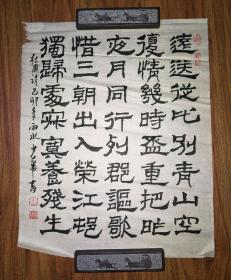 遠送從此別青山空
復情幾時盃重把昨
夜月同行列郡謳歌
惜三朝出入榮江邨
獨歸處寂寞養殘生
杜甫詩己卯年雨水少華書